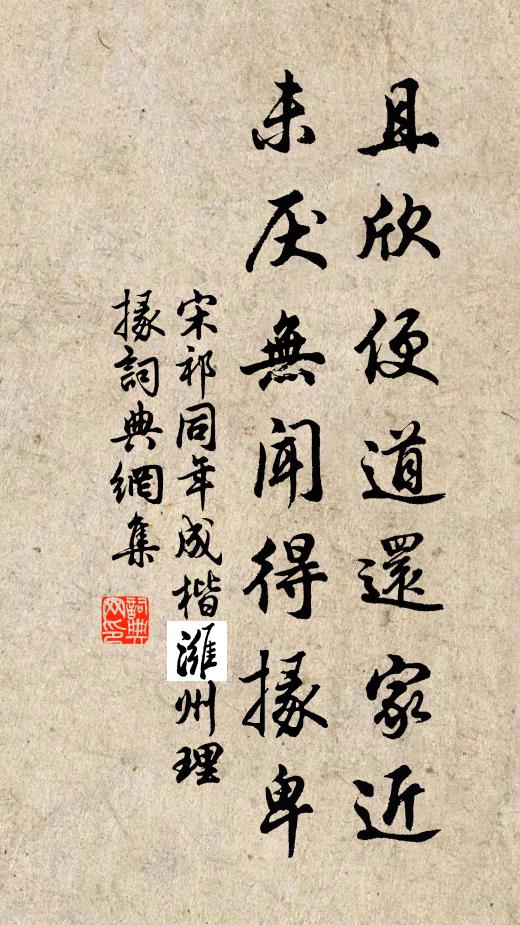 且欣便道還家近
未厌無聞得掾卑
宋祁同年成楷濰州理
掾詞典網集
詞典
网印